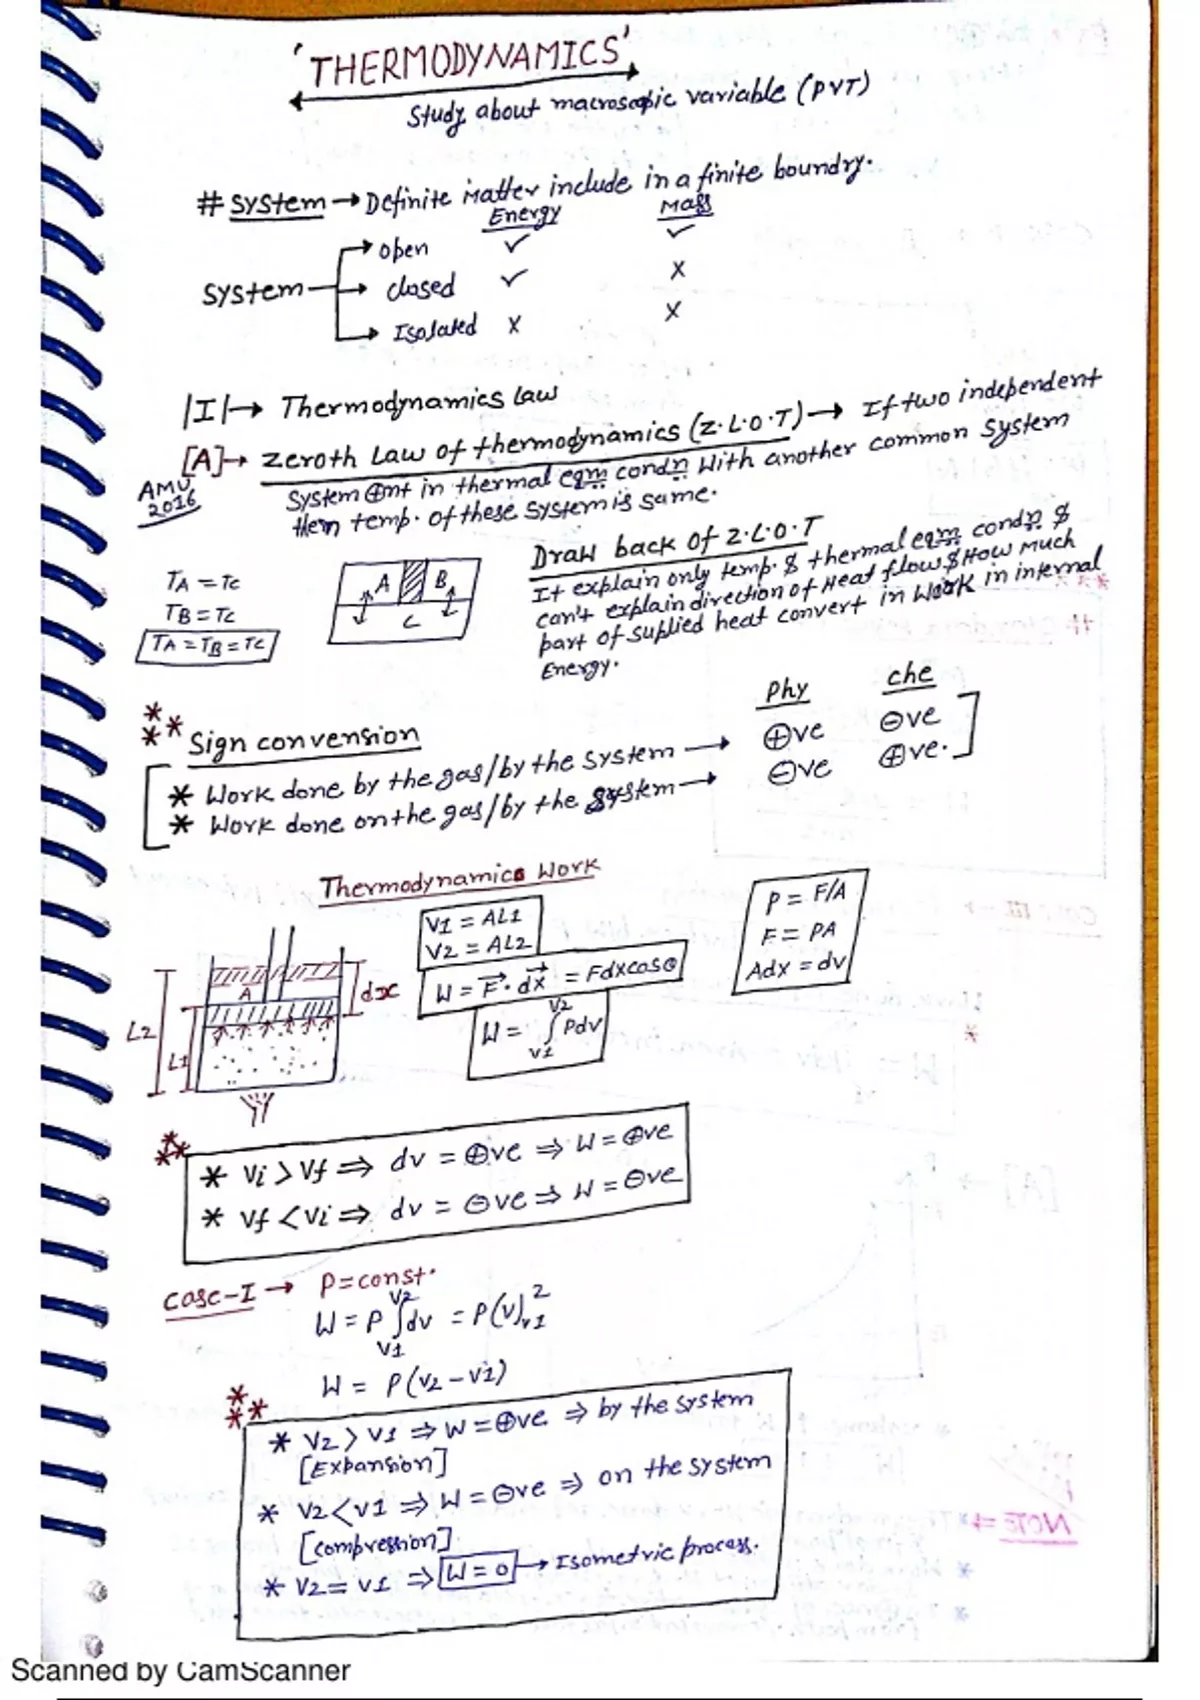 'THERMODYNAMICS'
Study about macroscopic variable (PVT)
# System → Definite matter include in a finite boundry.
Energy Mass
System → open ✓ ✓
→ closed ✓ x
→ Isolated x x
|I|→ Thermodynamics law
[A]→ zeroth Law of thermodynamics (Z.L.O.T)→ If two independent
AMU 2016
System ⊕nt in thermal eqm condn with another common system
then temp. of these system is same.
TA = TC
TB = TC
TA = TB = TC
A B
C
Draw back of Z.L.O.T
It explain only temp. & thermal eqm condn &
can't explain direction of Heat flow & How much
part of suplied heat convert in work in internal
Energy.
Phy che
** * Sign convension
* Work done by the gas/by the system → ⊕ve ⊖ve
* Work done on the gas/by the system → ⊖ve ⊕ve.
Thermodynamics Work
V1 = AL1
V2 = AL2
W = F→. dx→ = Fdxcosθ
W = ∫V1V2 Pdv
P = F/A
F = PA
Adx = dv
A
dx
L2
L1
* Vi > Vf ⇒ dv = ⊕ve ⇒ W = ⊕ve
* Vf < Vi ⇒ dv = ⊖ve ⇒ W = ⊖ve
Case-I → P=const.
W = P ∫V1V2 dv = P(v)v12
W = P(V2 - V1)
* V2 > V1 ⇒ W = ⊕ve ⇒ by the system
[Expansion]
* V2 < V1 ⇒ W = ⊖ve ⇒ on the system
[compression]
* V2 = V1 ⇒ W = 0 → Isometric process.
Scanned by CamScanner